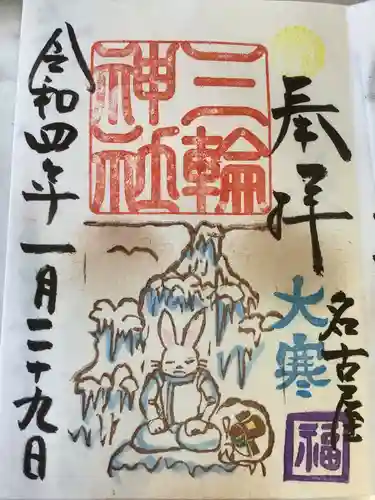 奉拝
大寒
名古屋
福
三輪
神社
令和四年一月二十九日